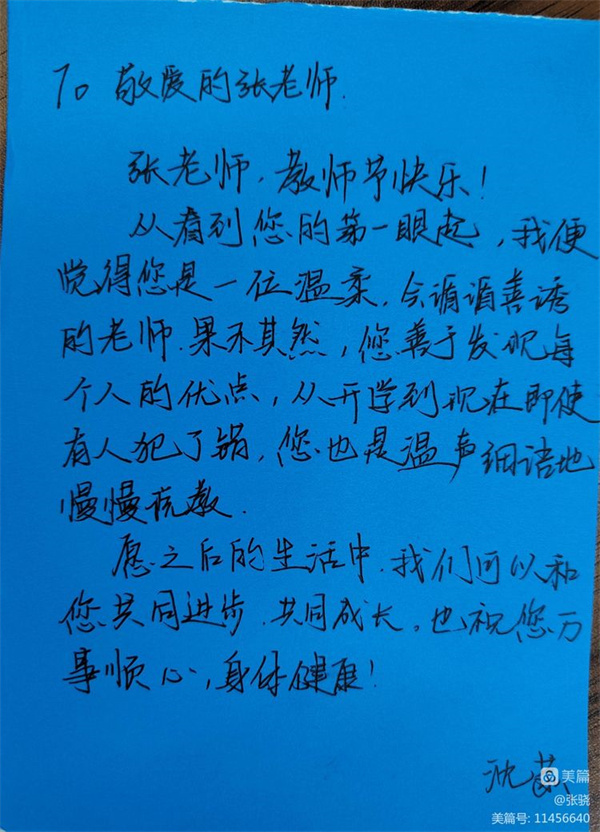 To 敬爱的张老师.
张老师，教师节快乐！
从看到您的第一眼起，我便
觉得您是一位温柔，会循循善诱
的老师.果不其然，您善于发现每
个人的优点，从开学到现在即使
有人犯了错，您也是温声细语地
慢慢说教.
愿之后的生活中，我们可以和
您共同进步.共同成长，也祝您万
事顺心，身体健康！
沈
美篇
@张骁
美篇号: 11456640